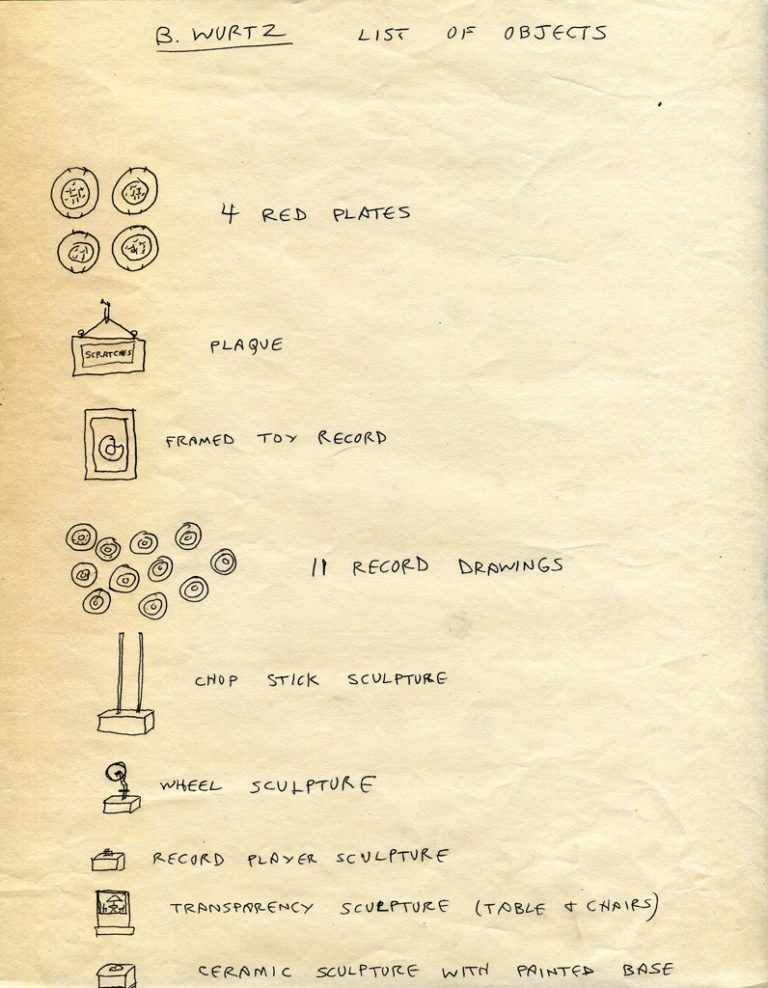 B. WURTZ LIST OF OBJECTS
4 RED PLATES
SCRATCHES
PLAQUE
FRAMED TOY RECORD
11 RECORD DRAWINGS
CHOP STICK SCULPTURE
WHEEL SCULPTURE
RECORD PLAYER SCULPTURE
TRANSPARENCY SCULPTURE (TABLE & CHAIRS)
CERAMIC SCULPTURE WITH PAINTED BASE